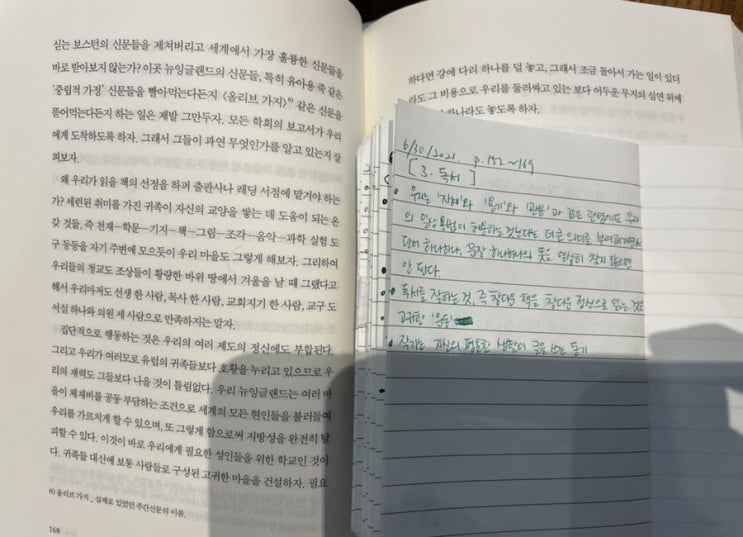 싣는 보스턴의 신문들을 제쳐버리고 세계에서 가장 훌륭한 신문들을
바로 받아보지 않는가? 이곳 뉴잉글랜드의 신문들, 특히 유아용 죽 같은
'중립적 가정' 신문들을 빨아먹는다든지 《올리브 가지》⁸⁾ 같은 신문을
뜯어먹는다든지 하는 일은 제발 그만두자. 모든 학회의 보고서가 우리
에게 도착하도록 하자. 그래서 그들이 과연 무엇인가를 알고 있는지 살
펴보자.
왜 우리가 읽을 책의 선정을 하퍼 출판사나 레딩 서점에 맡겨야 하는
가? 세련된 취미를 가진 귀족이 자신의 교양을 쌓는 데 도움이 되는 온
갖 것들, 즉 천재—학문—기지—책—그림—조각—음악—과학 실험 도
구 등등을 자기 주변에 모으듯이 우리 마을도 그렇게 해보자. 그리하여
우리들의 청교도 조상들이 황량한 바위 땅에서 겨울을 날 때 그랬다고
해서 우리마저도 선생 한 사람, 목사 한 사람, 교회지기 한 사람, 교구 도
서실 하나와 의원 세 사람으로 만족하지는 말자.
집단적으로 행동하는 것은 우리의 여러 제도의 정신에도 부합된다.
그리고 우리가 여러모로 유럽의 귀족들보다 호황을 누리고 있으므로 우
리의 재력도 그들보다 나을 것이 틀림없다. 우리 뉴잉글랜드는 여러 마
을이 체재비를 공동 부담하는 조건으로 세계의 모든 현인들을 불러들여
우리를 가르치게 할 수 있으며, 또 그렇게 함으로써 지방성을 완전히 탈
피할 수 있다. 이것이 바로 우리에게 필요한 성인들을 위한 학교인 것이
다. 귀족들 대신에 보통 사람들로 구성된 고귀한 마을을 건설하자. 필요
8) 올리브 가지_ 실제로 있었던 주간신문의 이름.
168
하다면 강에 다리 하나를 덜 놓고, 그래서 조금 돌아서 가는 일이 있더
라도 그 비용으로 우리를 둘러싸고 있는 보다 어두운 무지의 심연 위에
하나라도 놓도록 하자.
6/30/2021. p.152~169
[3. 독서]
• 우리는 '지혜'와 '용기'와 '관용'과 같은 관념에도 우리
의 일상용법이 허용하는 것보다는 더 큰 의미를 부여해가면서
단어 하나하나, 문장 하나하나의 뜻을 열심히 찾지 않으면
안 된다
• 독서를 잘하는 것, 즉 참다운 책을 참다운 정신으로 읽는 것은
고귀한 '운동'
• 작가는 자신의 평온한 생활이 글을 쓰는 동기